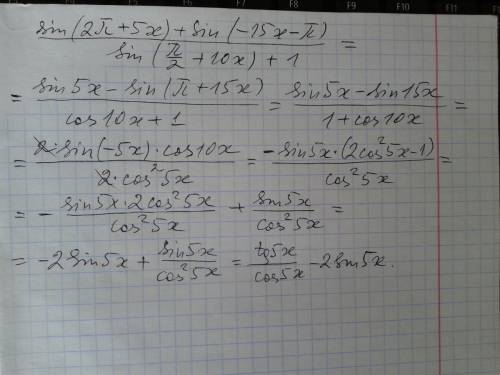 (sin(2π+5x)+sin(-15x-π))/(sin(π/2+10x)+1) =
= (sin5x-sin(π+15x))/(cos10x+1) = (sin5x-sin15x)/(1+cos10x) =
= (2·sin(-5x)·cos10x)/(2·cos²5x) = (-sin5x·(2cos²5x-1))/(cos²5x) =
= - (sin5x·2cos²5x)/(cos²5x) + (sin5x)/(cos²5x) =
= -2sin5x + (sin5x)/(cos²5x) = (tg5x)/(cos5x) - 2sin5x.